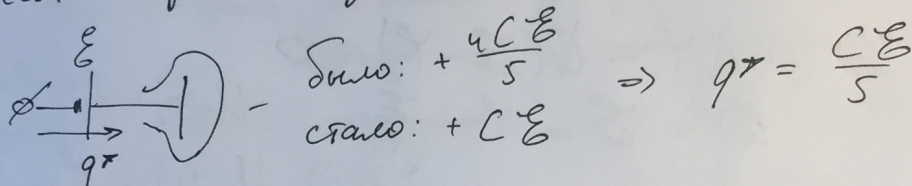 ℰ
было: + 4Cℰ/5
стало: + Cℰ
⇒ q* = Cℰ/5
q*